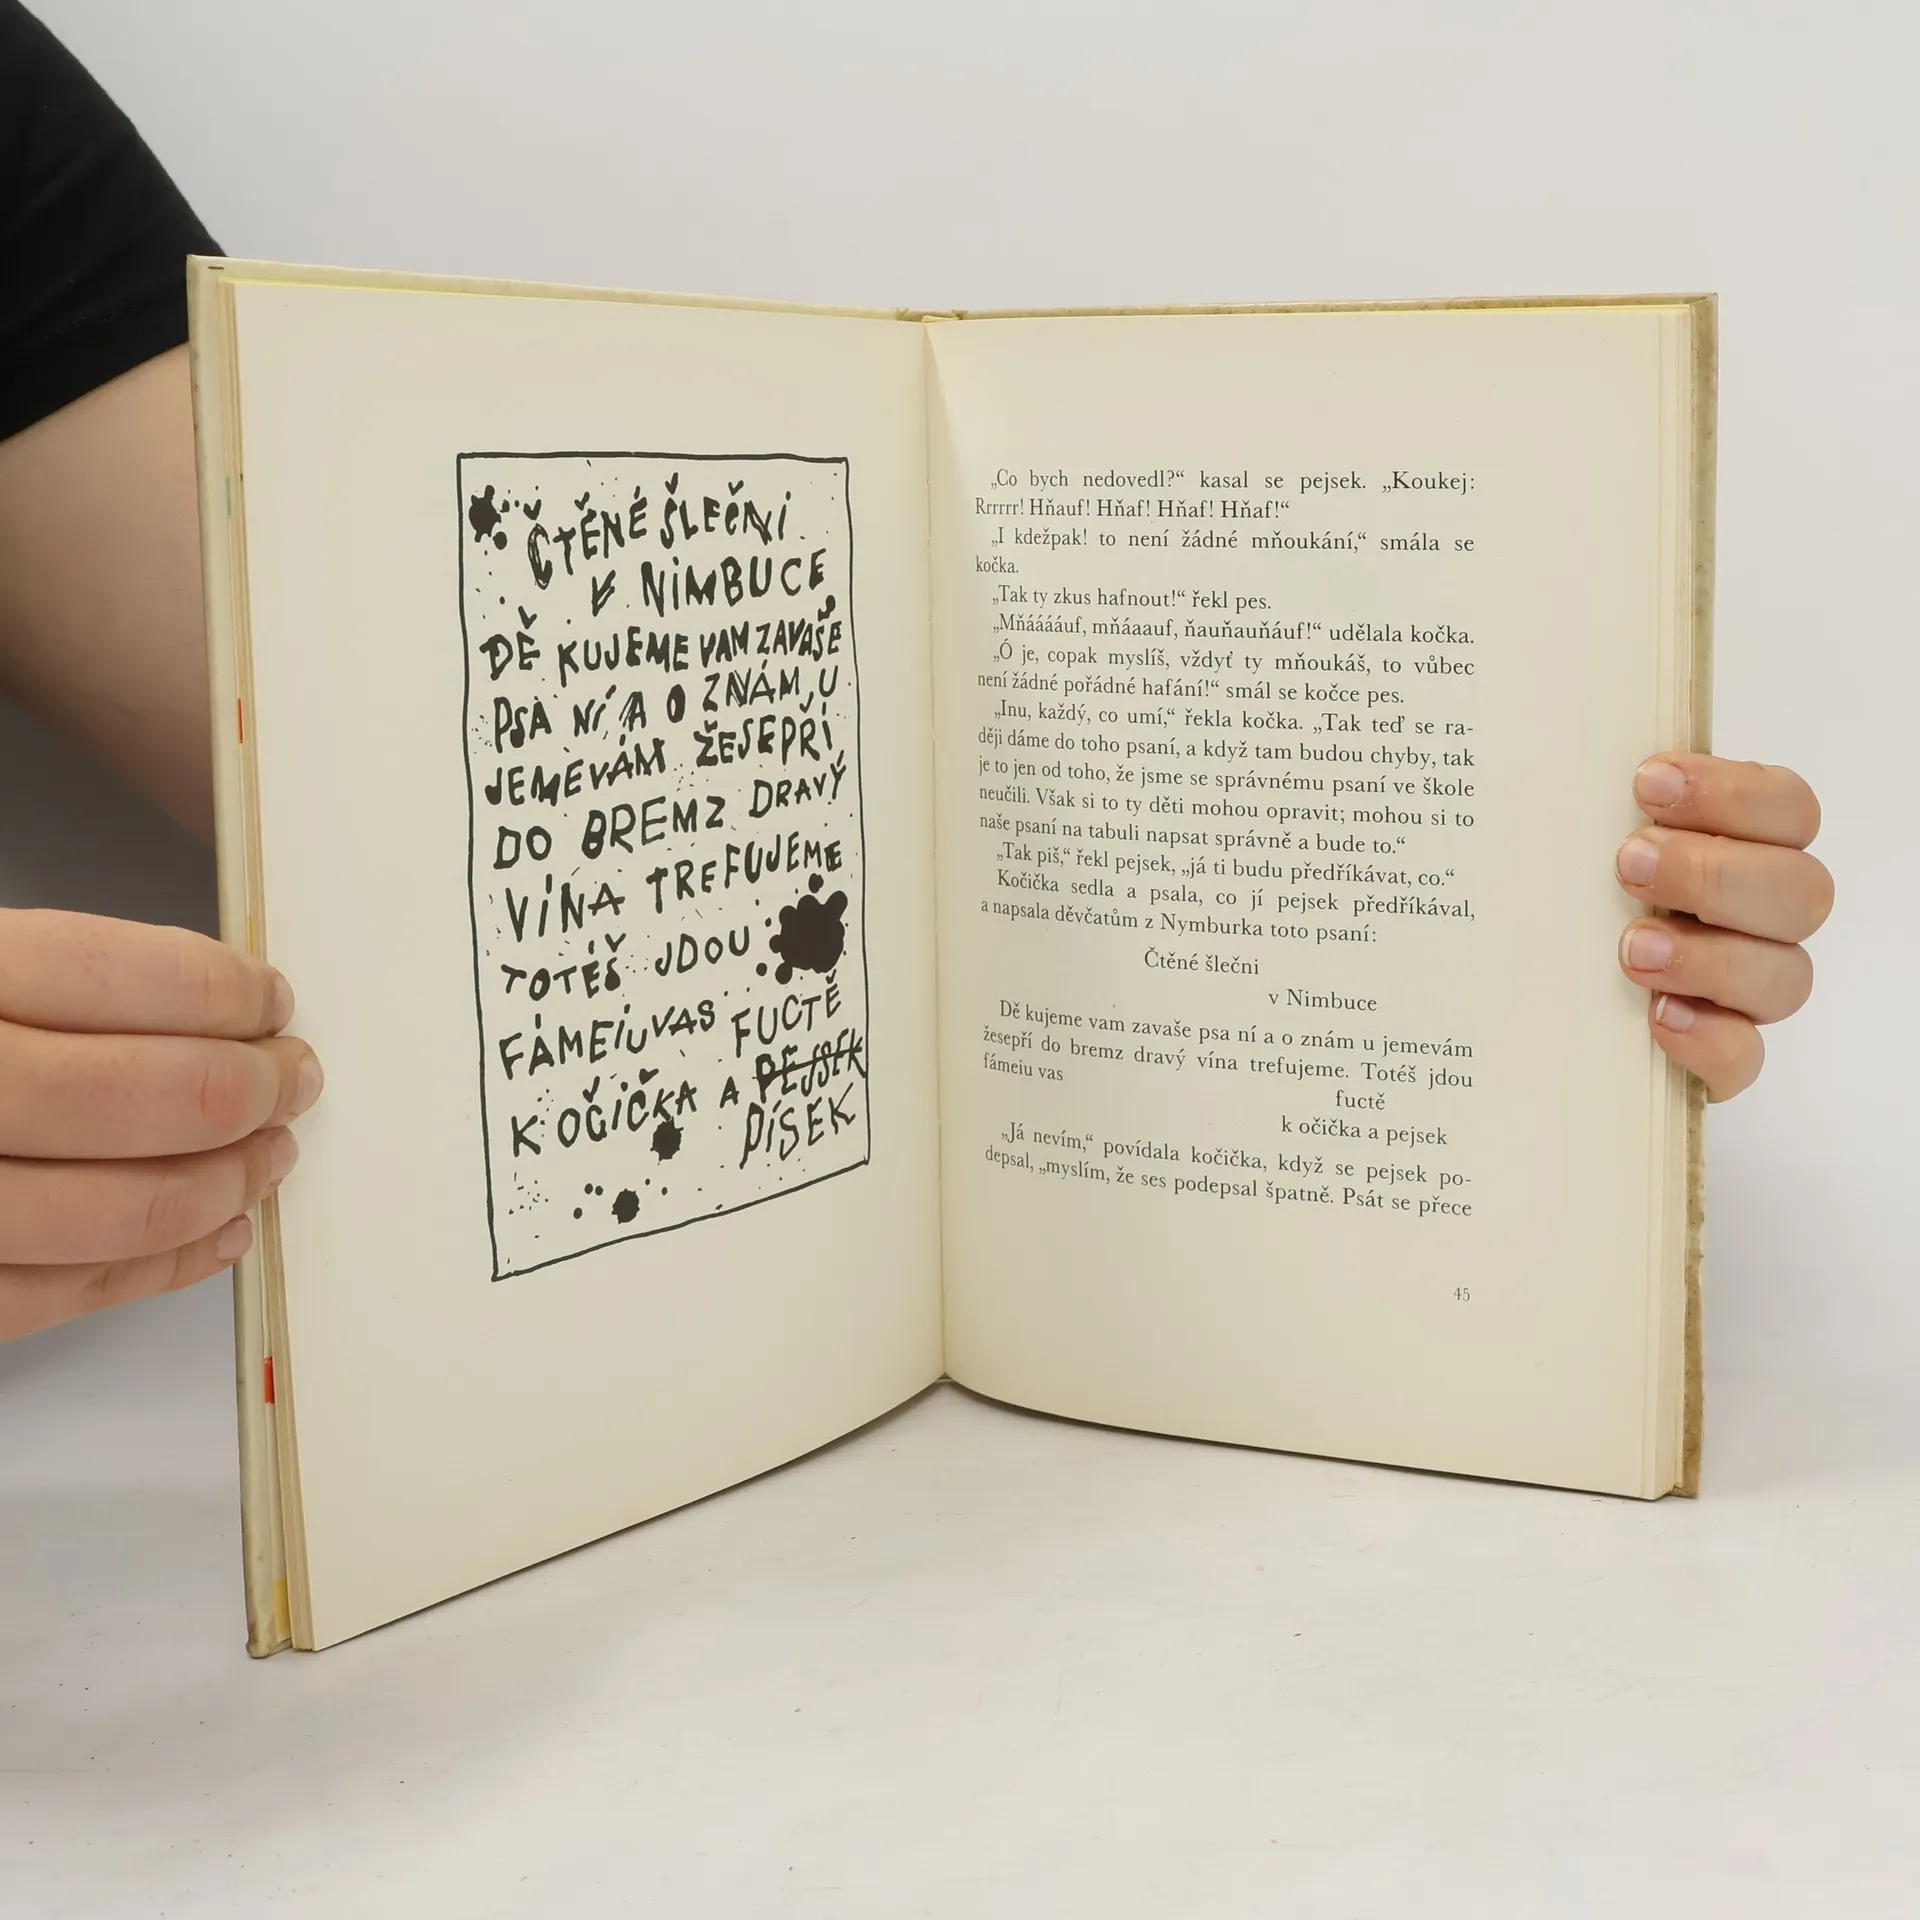 ČTĚNÉ ŠLEČNI
V NIMBUCE
DĚ KUJEME VAM ZAVAŠE
PSA NÍ A O ZNÁM U
JEMEVÁM ŽESEPŘÍ
DO BREMZ DRAVÝ
VÍNA TREFUJEME
TOTÉŠ JDOU
FÁMEIUVAS FUCTĚ
K OČIČKA A PEJSEK
PÍSEK
„Co bych nedovedl?“ kasal se pejsek. „Koukej:
Rrrrrr! Hňauf! Hňaf! Hňaf! Hňaf!“
„I kdežpak! to není žádné mňoukání,“ smála se
kočka.
„Tak ty zkus hafnout!“ řekl pes.
„Mňááááuf, mňáaauf, ňauňauňáuf!“ udělala kočka.
„Ó je, copak myslíš, vždyť ty mňoukáš, to vůbec
není žádné pořádné hafání!“ smál se kočce pes.
„Inu, každý, co umí,“ řekla kočka. „Tak teď se ra-
ději dáme do toho psaní, a když tam budou chyby, tak
je to jen od toho, že jsme se správnému psaní ve škole
neučili. Však si to ty děti mohou opravit; mohou si to
naše psaní na tabuli napsat správně a bude to.“
„Tak piš,“ řekl pejsek, „já ti budu předříkávat, co.“
Kočička sedla a psala, co jí pejsek předříkával,
a napsala děvčatům z Nymburka toto psaní:
Čtěné šlečni
v Nimbuce
Dě kujeme vam zavaše psa ní a o znám u jemevám
žesepří do bremz dravý vína trefujeme. Totéš jdou
fámeiu vas
fuctě
k očička a pejsek
„Já nevím,“ povídala kočička, když se pejsek po-
depsal, „myslím, že ses podepsal špatně. Psát se přece
45